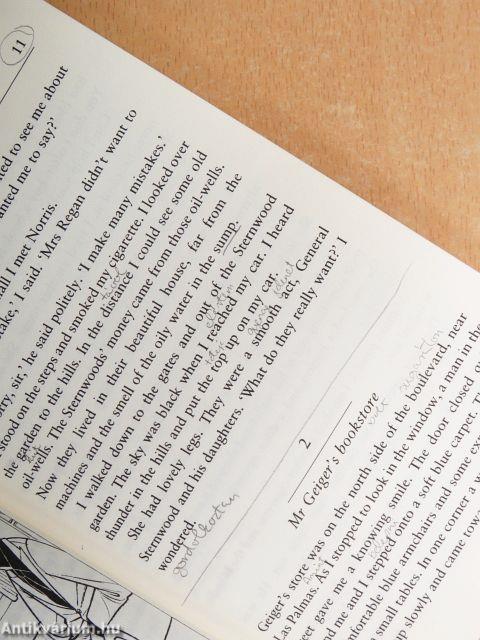 11
ted to see me about
anted me to say?'
all I met Norris.
take,' I said. 'Mrs Regan didn't want to
orry, sir,' he said politely. 'I make many mistakes.'
stood on the steps and smoked my cigarette. I looked over
he garden to the hills. In the distance I could see some old
oil-wells. The Sternwoods' money came from those oil-wells.
Now they lived in their beautiful house, far from the
machines and the smell of the oily water in the sump.
I walked down to the gates and out of the Sternwood
garden. The sky was black when I reached my car. I heard
thunder in the hills and put the top up on my car.
She had lovely legs. They were a smooth act, General
Sternwood and his daughters. 'What do they really want?' I
wondered.
gondolkoztam
2
Mr Geiger's bookstore
Geiger's store was on the north side of the boulevard near
Las Palmas. As I stopped to look in the window, a man in the
gave me a knowing smile. The door closed
nd me and I stepped onto a soft blue carpet. Th
mfortable blue armchairs and some exp
small tables. In one corner a w
slowly and came towa
Antikvárium.hu